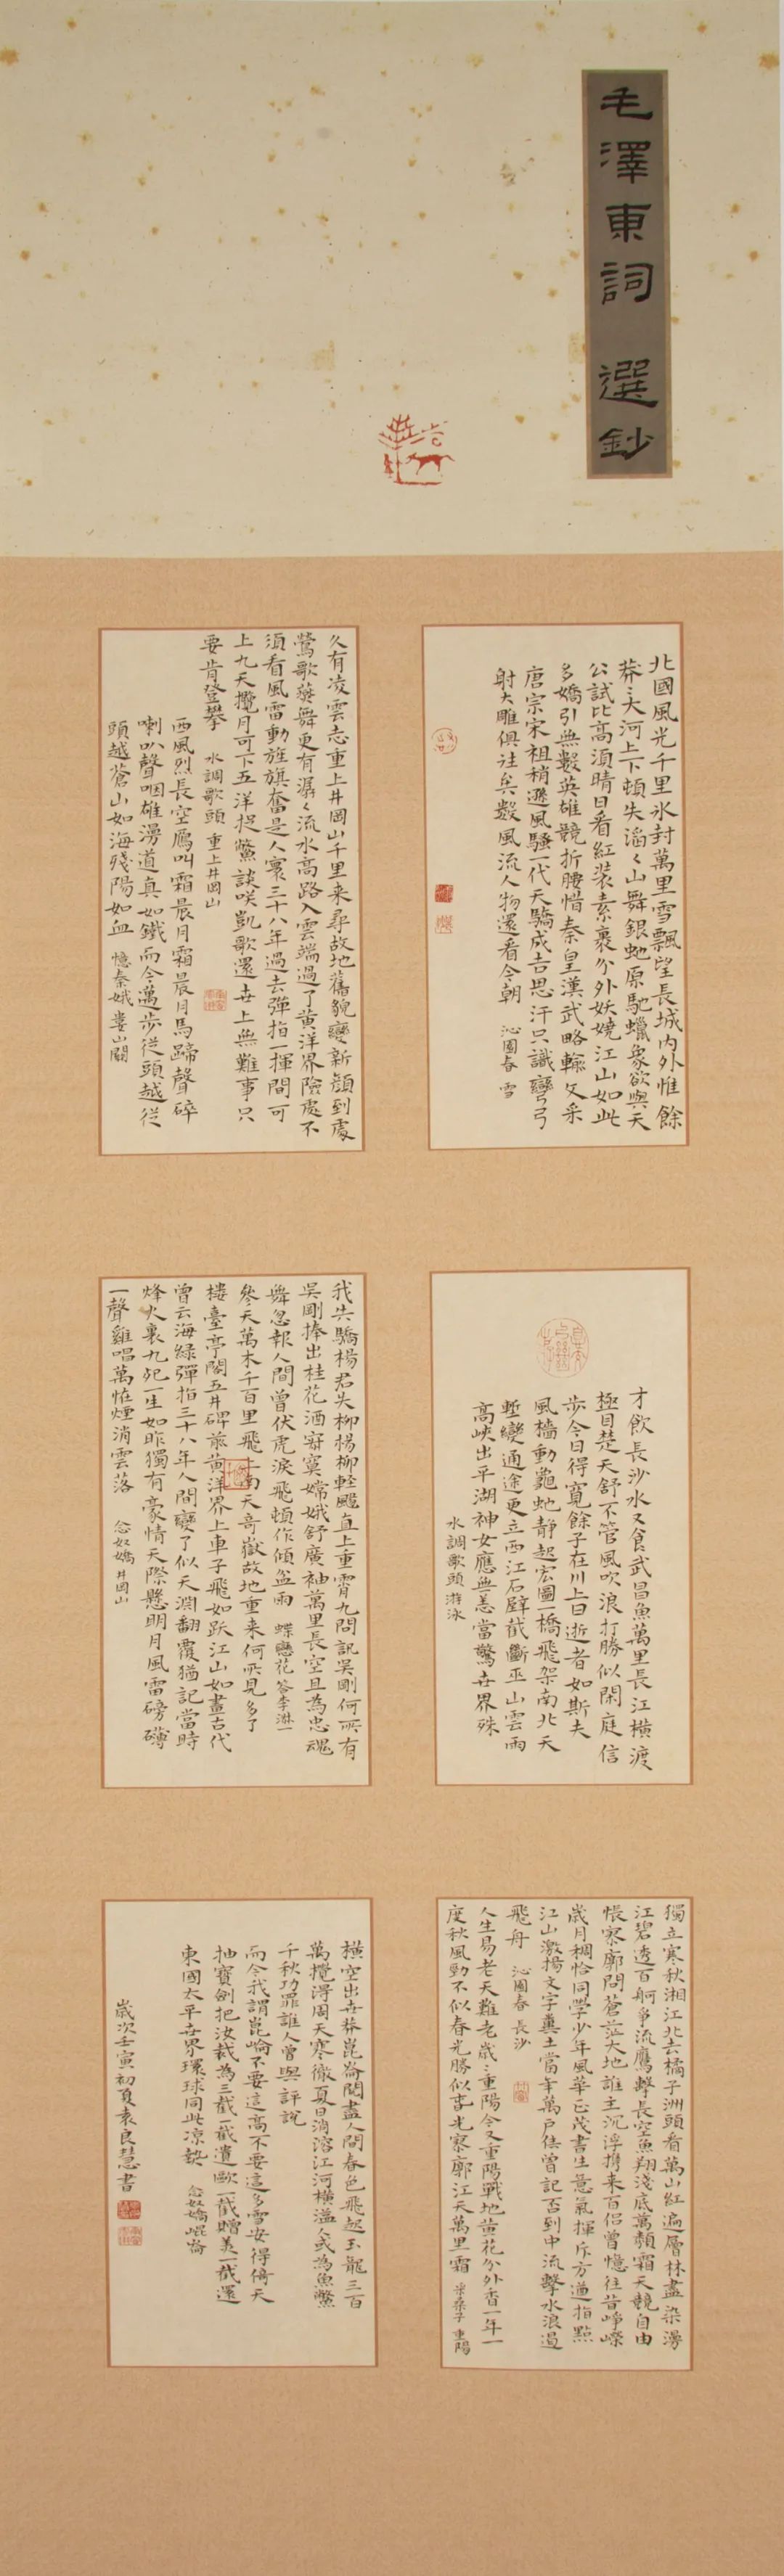 毛澤東詞 選鈔
北國風光千里冰封萬里雪飄望長城內外惟餘
莽〻大河上下頓失滔〻山舞銀蛇原馳蠟象欲與天
公試比高須晴日看紅裝素裹分外妖嬈江山如此
多嬌引無數英雄競折腰惜秦皇漢武略輸文采
唐宗宋祖稍遜風騷一代天驕成吉思汗只識彎弓
射大雕俱往矣數風流人物還看今朝 沁園春 雪
久有凌雲志重上井岡山千里来尋故地舊貌變新顏到處
鶯歌燕舞更有潺〻流水高路入雲端過了黃洋界險處不
須看風雷動旌旗奮是人寰三十八年過去彈指一揮間可
上九天攬月可下五洋捉鱉談笑凱歌還世上無難事只
要肯登攀 水調歌頭 重上井岡山
西風烈長空鴈叫霜晨月霜晨月馬蹄聲碎
喇叭聲咽雄漫道真如鐵而今邁步從頭越從
頭越蒼山如海殘陽如血 憶秦娥 婁山關
才飲長沙水又食武昌魚萬里長江橫渡
極目楚天舒不管風吹浪打勝似閑庭信
步今日得寬餘子在川上曰逝者如斯夫
風檣動龜蛇静起宏圖一橋飛架南北天
塹變通途更立西江石壁截斷巫山雲雨
高峽出平湖神女應無恙當驚世界殊
水調歌頭 游泳
我失驕楊君失柳楊柳輕颺直上重霄九問訊吳剛何所有
吳剛捧出桂花酒寂寞嫦娥舒廣袖萬里長空且為忠魂
舞忽報人間曾伏虎淚飛頓作傾盆雨 蝶戀花 答李淑一
參天萬木千百里飛上南天奇嶽故地重来何所見多了
樓臺亭閣五井碑前黃洋界上車子飛如跃江山如畫古代
曾云海綠彈指三十八年人間變了似天淵翻覆猶記當時
烽火裏九死一生如昨獨有豪情天際懸明月風雷磅礴
一聲雞唱萬怪煙消雲落 念奴嬌 井岡山
獨立寒秋湘江北去橘子洲頭看萬山紅遍層林盡染漫
江碧透百舸爭流鷹擊長空魚翔淺底萬類霜天競自由
悵寥廓問蒼茫大地誰主沉浮攜来百侶曾憶往昔崢嶸
歲月稠恰同學少年風華正茂書生意氣揮斥方遒指點
江山激揚文字糞土當年萬戶侯曾記否到中流擊水浪遏
飛舟 沁園春 長沙
人生易老天難老歲〻重陽今又重陽戰地黃花分外香一年一
度秋風勁不似春光勝似春光寥廓江天萬里霜 采桑子 重陽
橫空出世莽崑崙閱盡人間春色飛起玉龍三百
萬攪得周天寒徹夏日消溶江河橫溢人或為魚鱉
千秋功罪誰人曾與評說
而今我謂崑崙不要這高不要這多雪安得倚天
抽寶劍把汝裁為三截一截遺歐一截贈美一截還
東國太平世界環球同此凉熱 念奴嬌 崑崙
歲次壬寅初夏袁良慧書